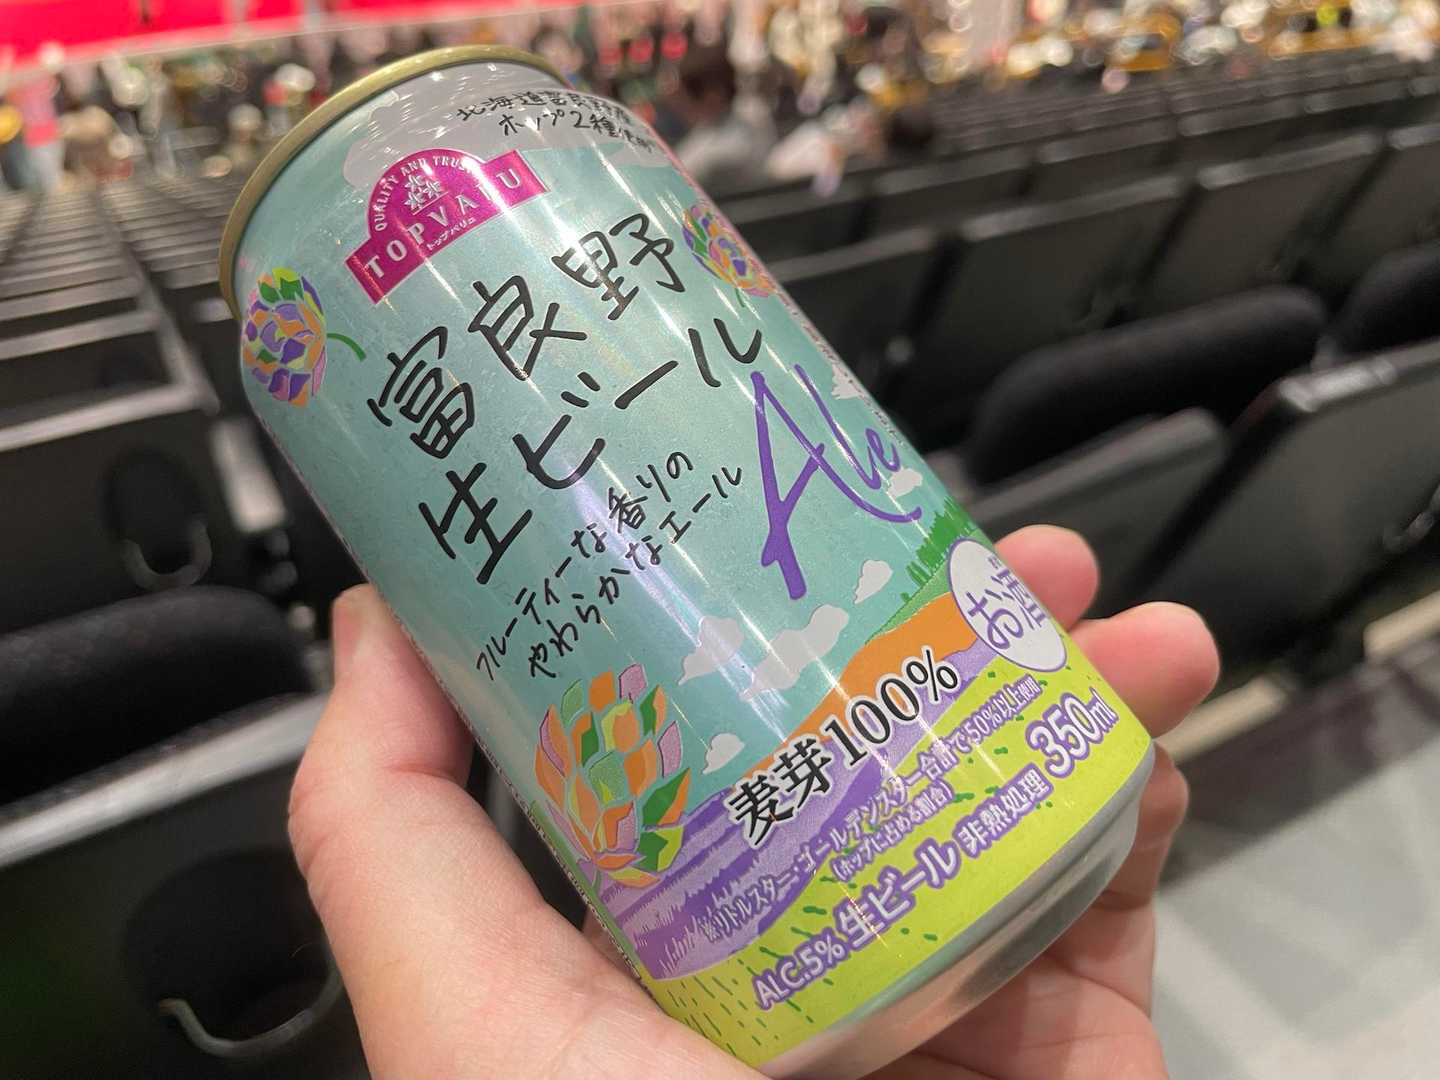 北海道富良野産
ホップ2種使用
QUALITY AND TRUST
TOPVALU
トップバリュ
富良野
生ビール
Ale
フルーティーな香りの
やわらかなエール
お酒
麦芽100%
※リトルスター・ゴールデンスター合計で50%以上使用
(ホップに占める割合)
ALC.5% 生ビール 非熱処理 350ml